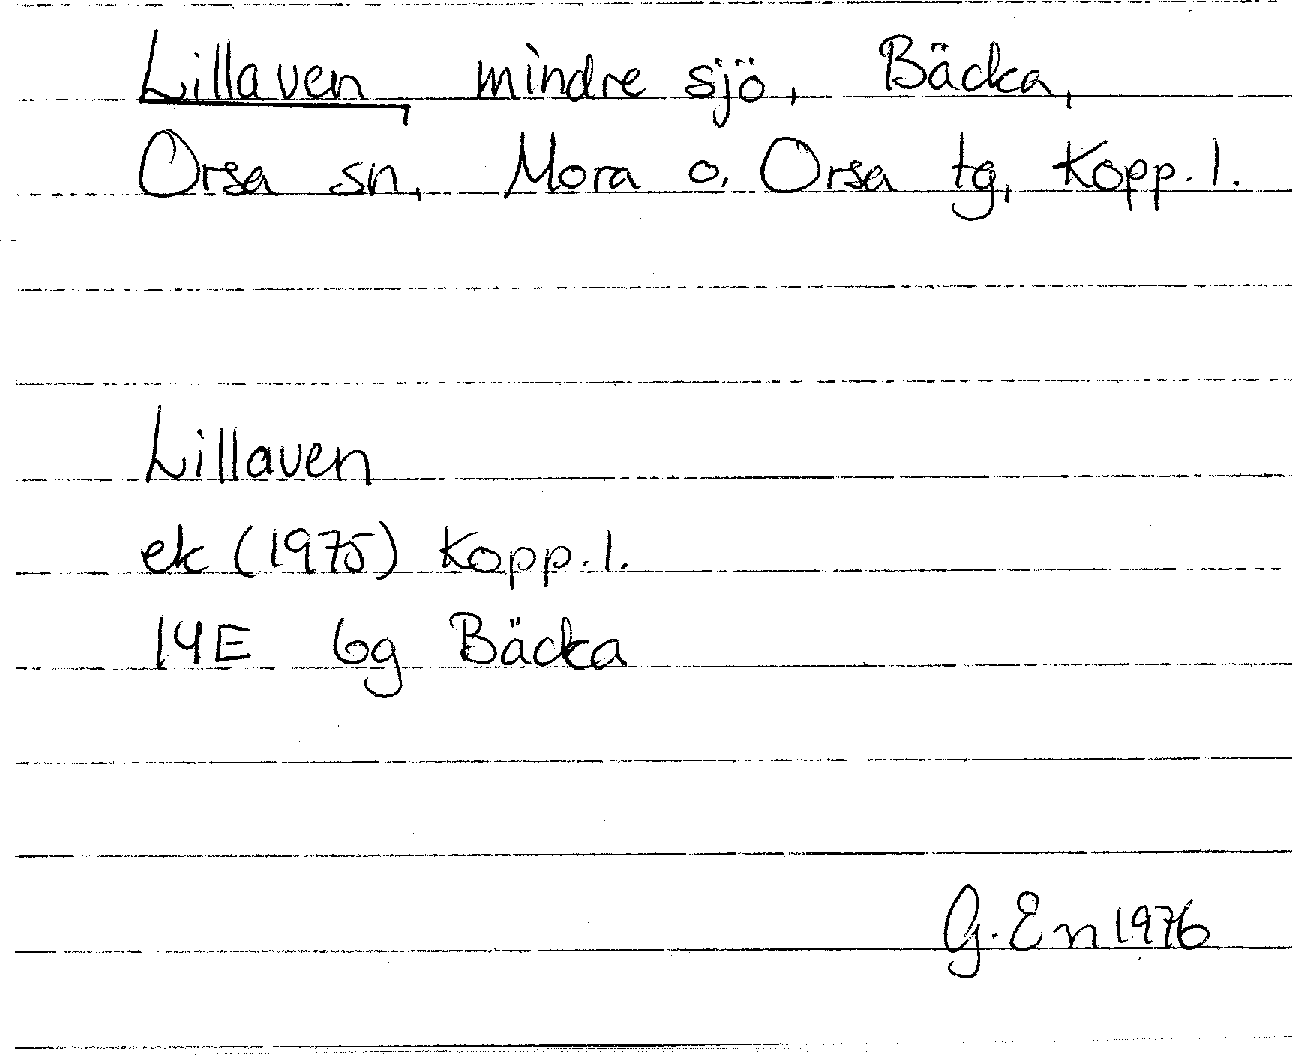 Lillaven, mindre sjö, Bäcka,
Orsa sn, Mora o. Orsa tg, Kopp. l.
Lillaven
ek (1975) Kopp. l.
14E 6g Bäcka
G. En 1976